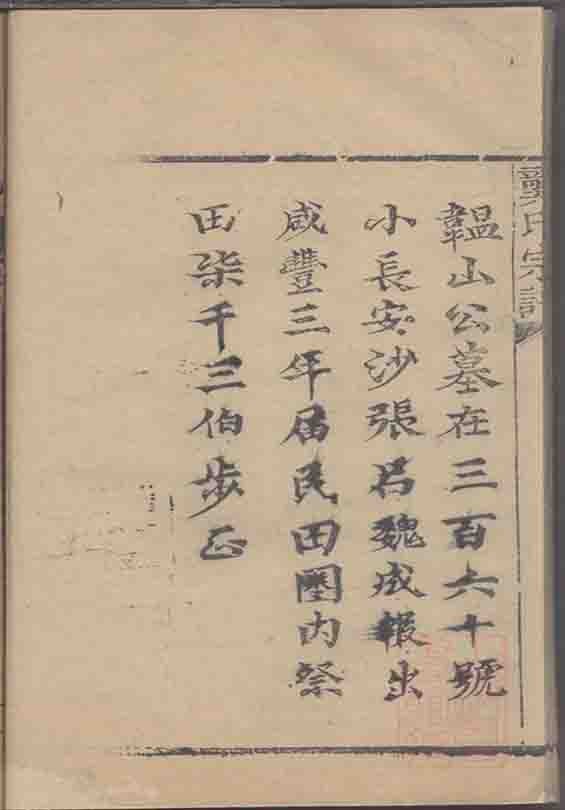 氏宗譜
韞山公墓在三百六十號
小長安沙張呂魏成報出
咸豐三年届民田圈内祭
田柒千三伯步正